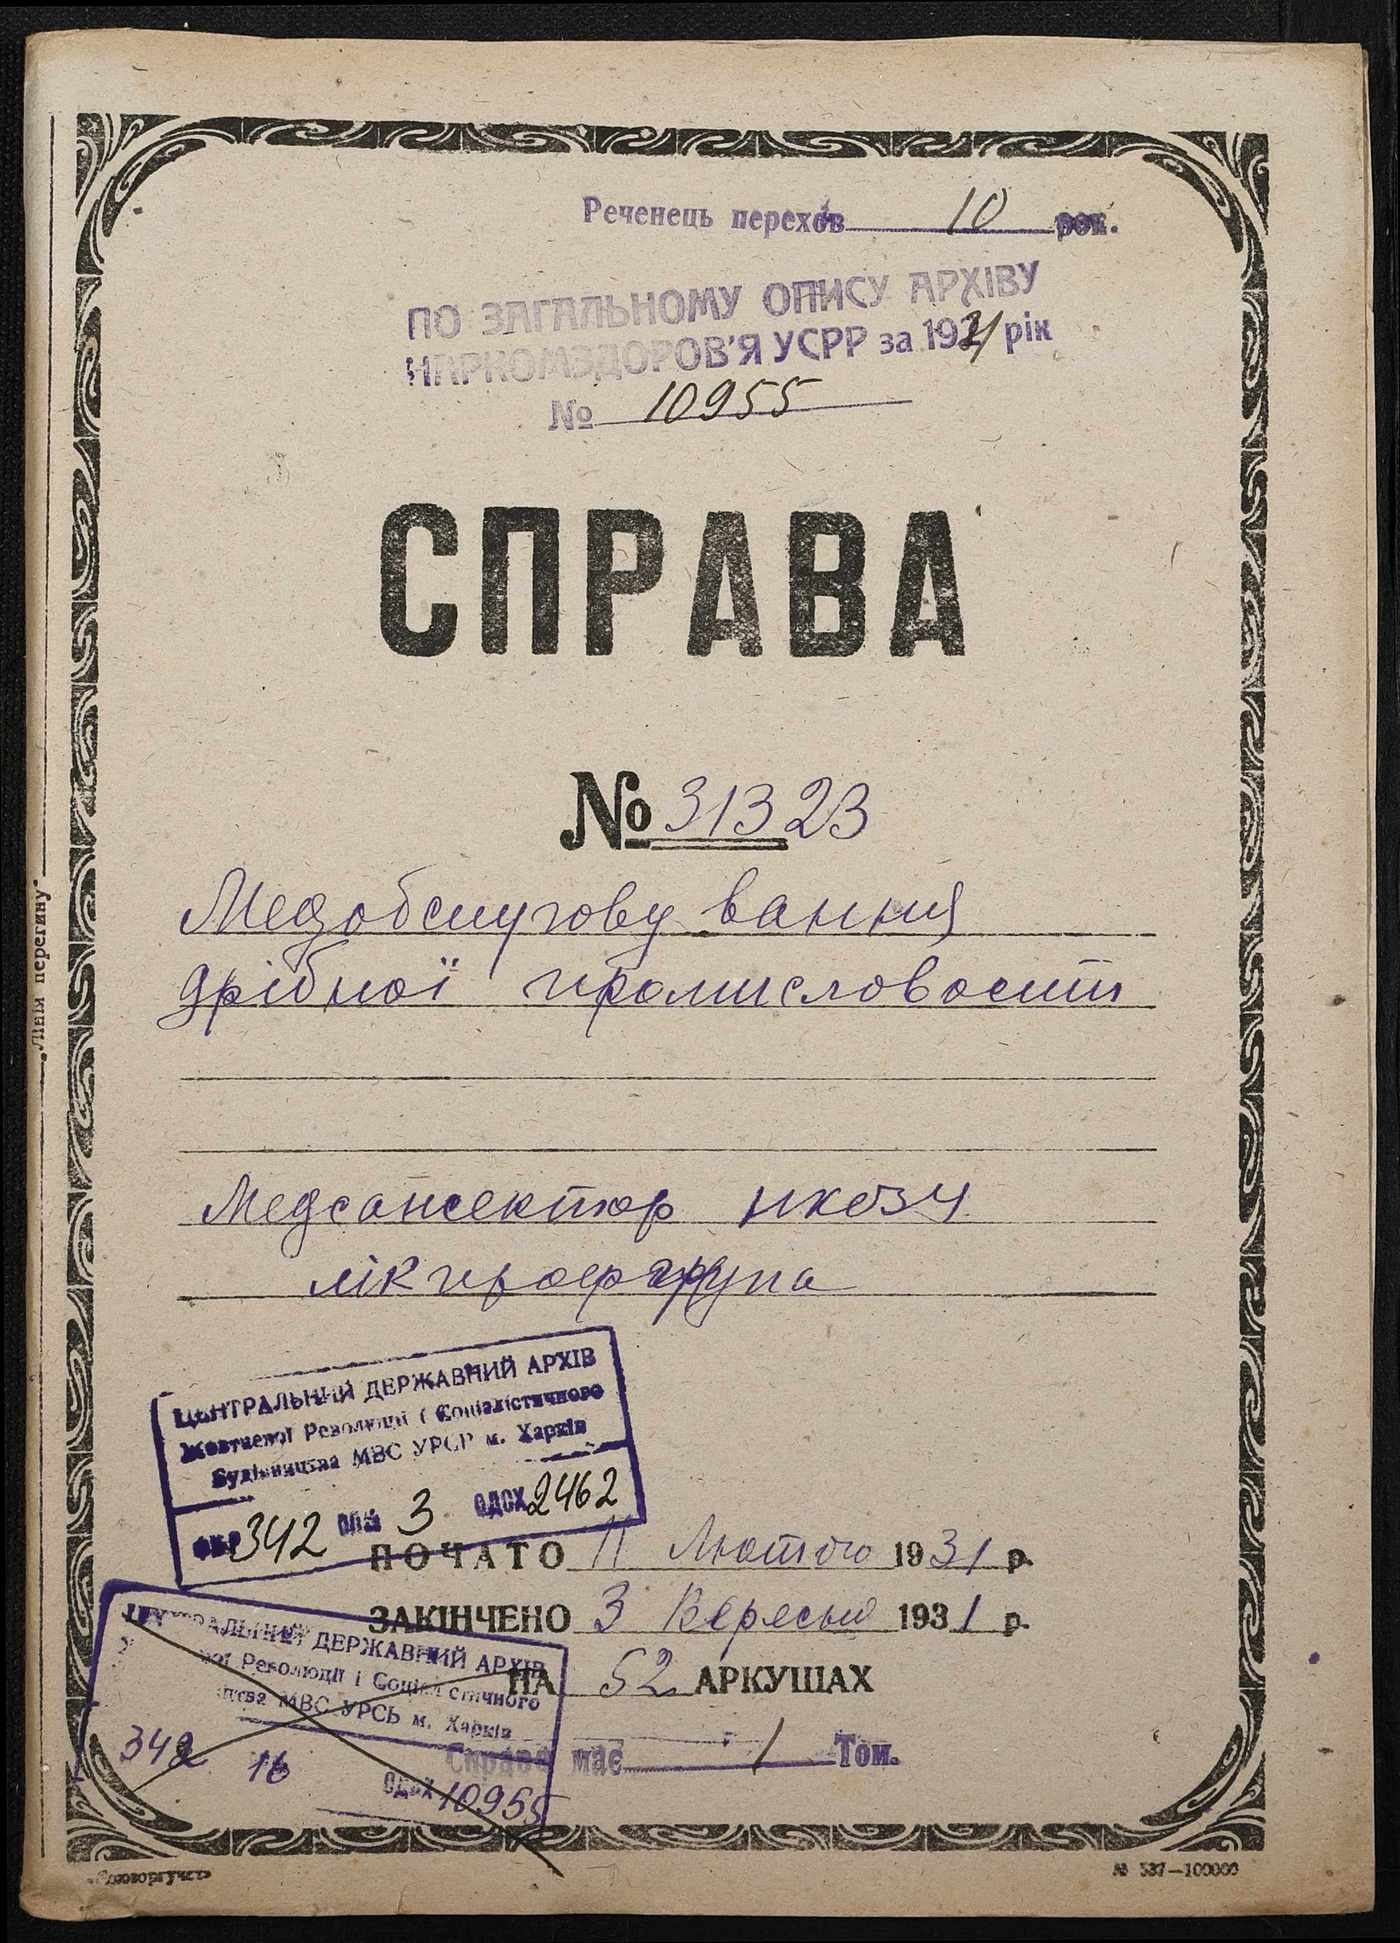 Реченець перехов 10 рок.
ПО ЗАГАЛЬНОМУ ОПИСУ АРХІВУ
НАРКОМЗДОРОВ'Я УСРР за 1931 рік
№ 10955
СПРАВА
№ 31323
Медобслуговування
дрібної промисловости
Медсансектор НКОЗ
лікпрофгрупа
„Лінія перегину"
ЦЕНТРАЛЬНИЙ ДЕРЖАВНИЙ АРХІВ
Жовтневої Революції і Соціалістичного
Будівництва МВС УРСР м. Харків
ФНР 342 ОП№ 3 ОДСХ 2462
ПОЧАТО 11 Лютого 1931 р.
ЗАКІНЧЕНО 3 Вересня 1931 р.
НА 52 АРКУШАХ
ЦЕНТРАЛЬНИЙ ДЕРЖАВНИЙ АРХІВ
Революції і Соціалістичного
МВС УРСР м. Харків
342 16 ОДСХ 10955
Справа має 1 Том.
№ 537—100000